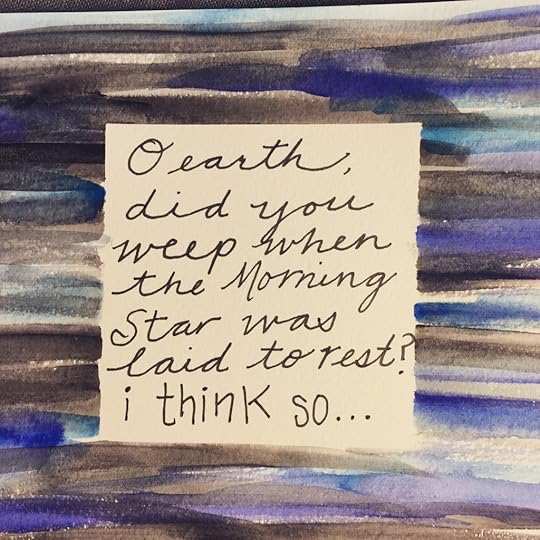 O earth,
did you
weep when
the Morning
Star was
laid to rest?
i think so...